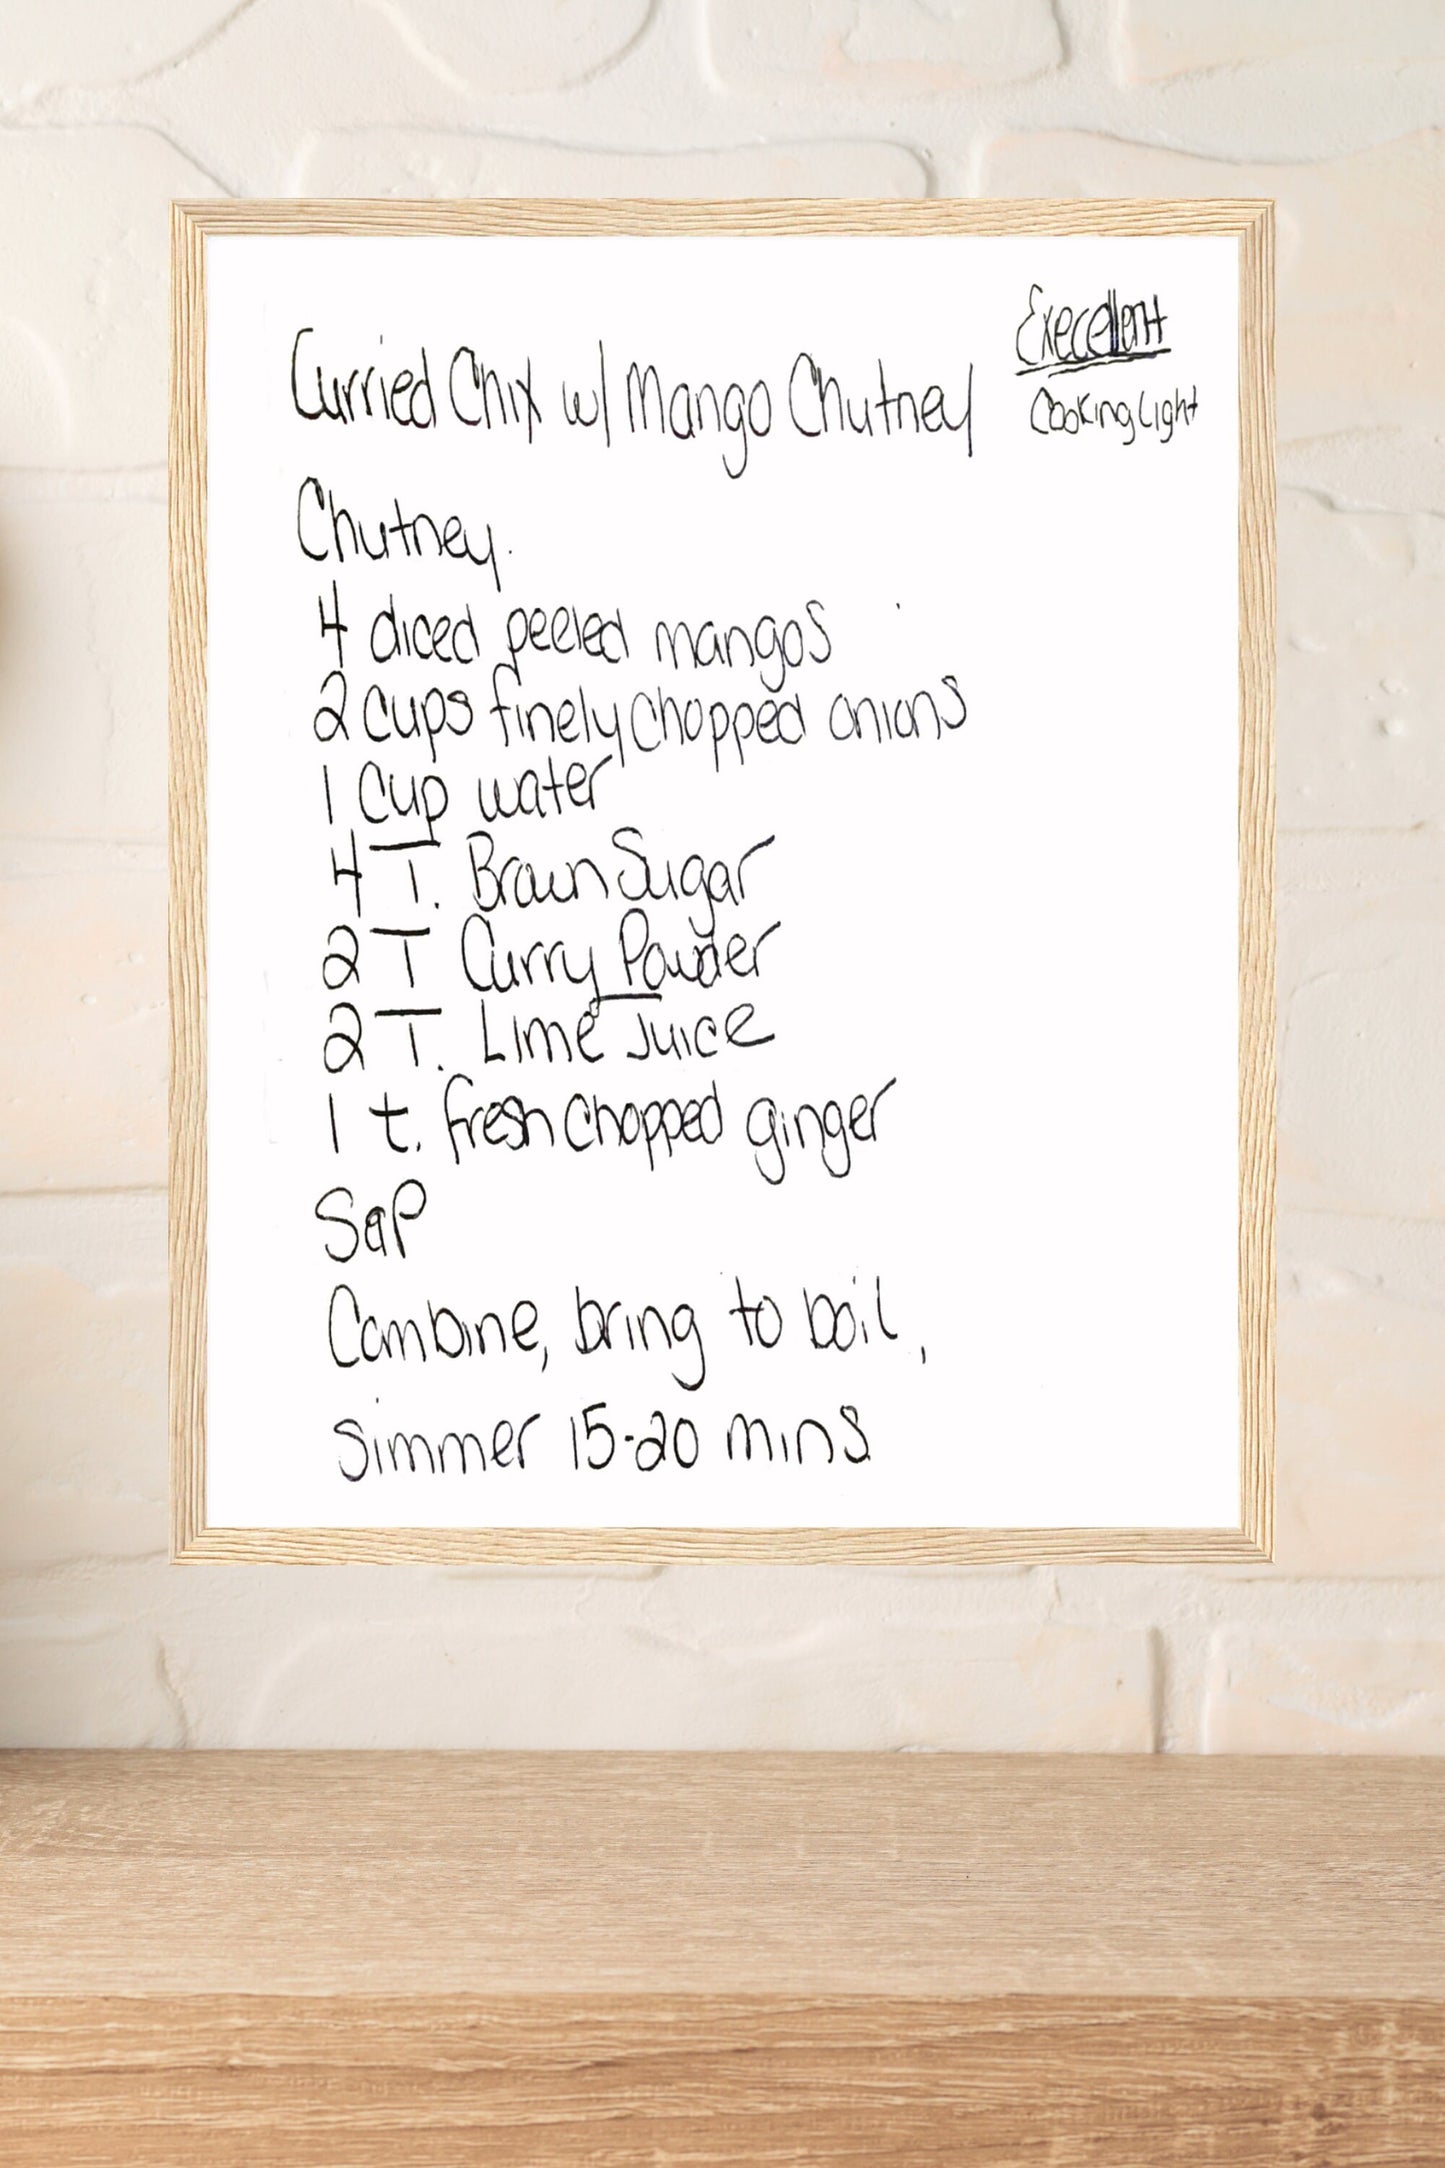 Execellent
Curried Chix w/ Mango Chutney
Cooking Light
Chutney.
4 diced peeled mangos
2 cups finely chopped onions
1 cup water
4 T. Brown Sugar
2 T Curry Powder
2 T. Lime Juice
1 t. fresh chopped ginger
S&P
Combine, bring to boil,
simmer 15-20 mins